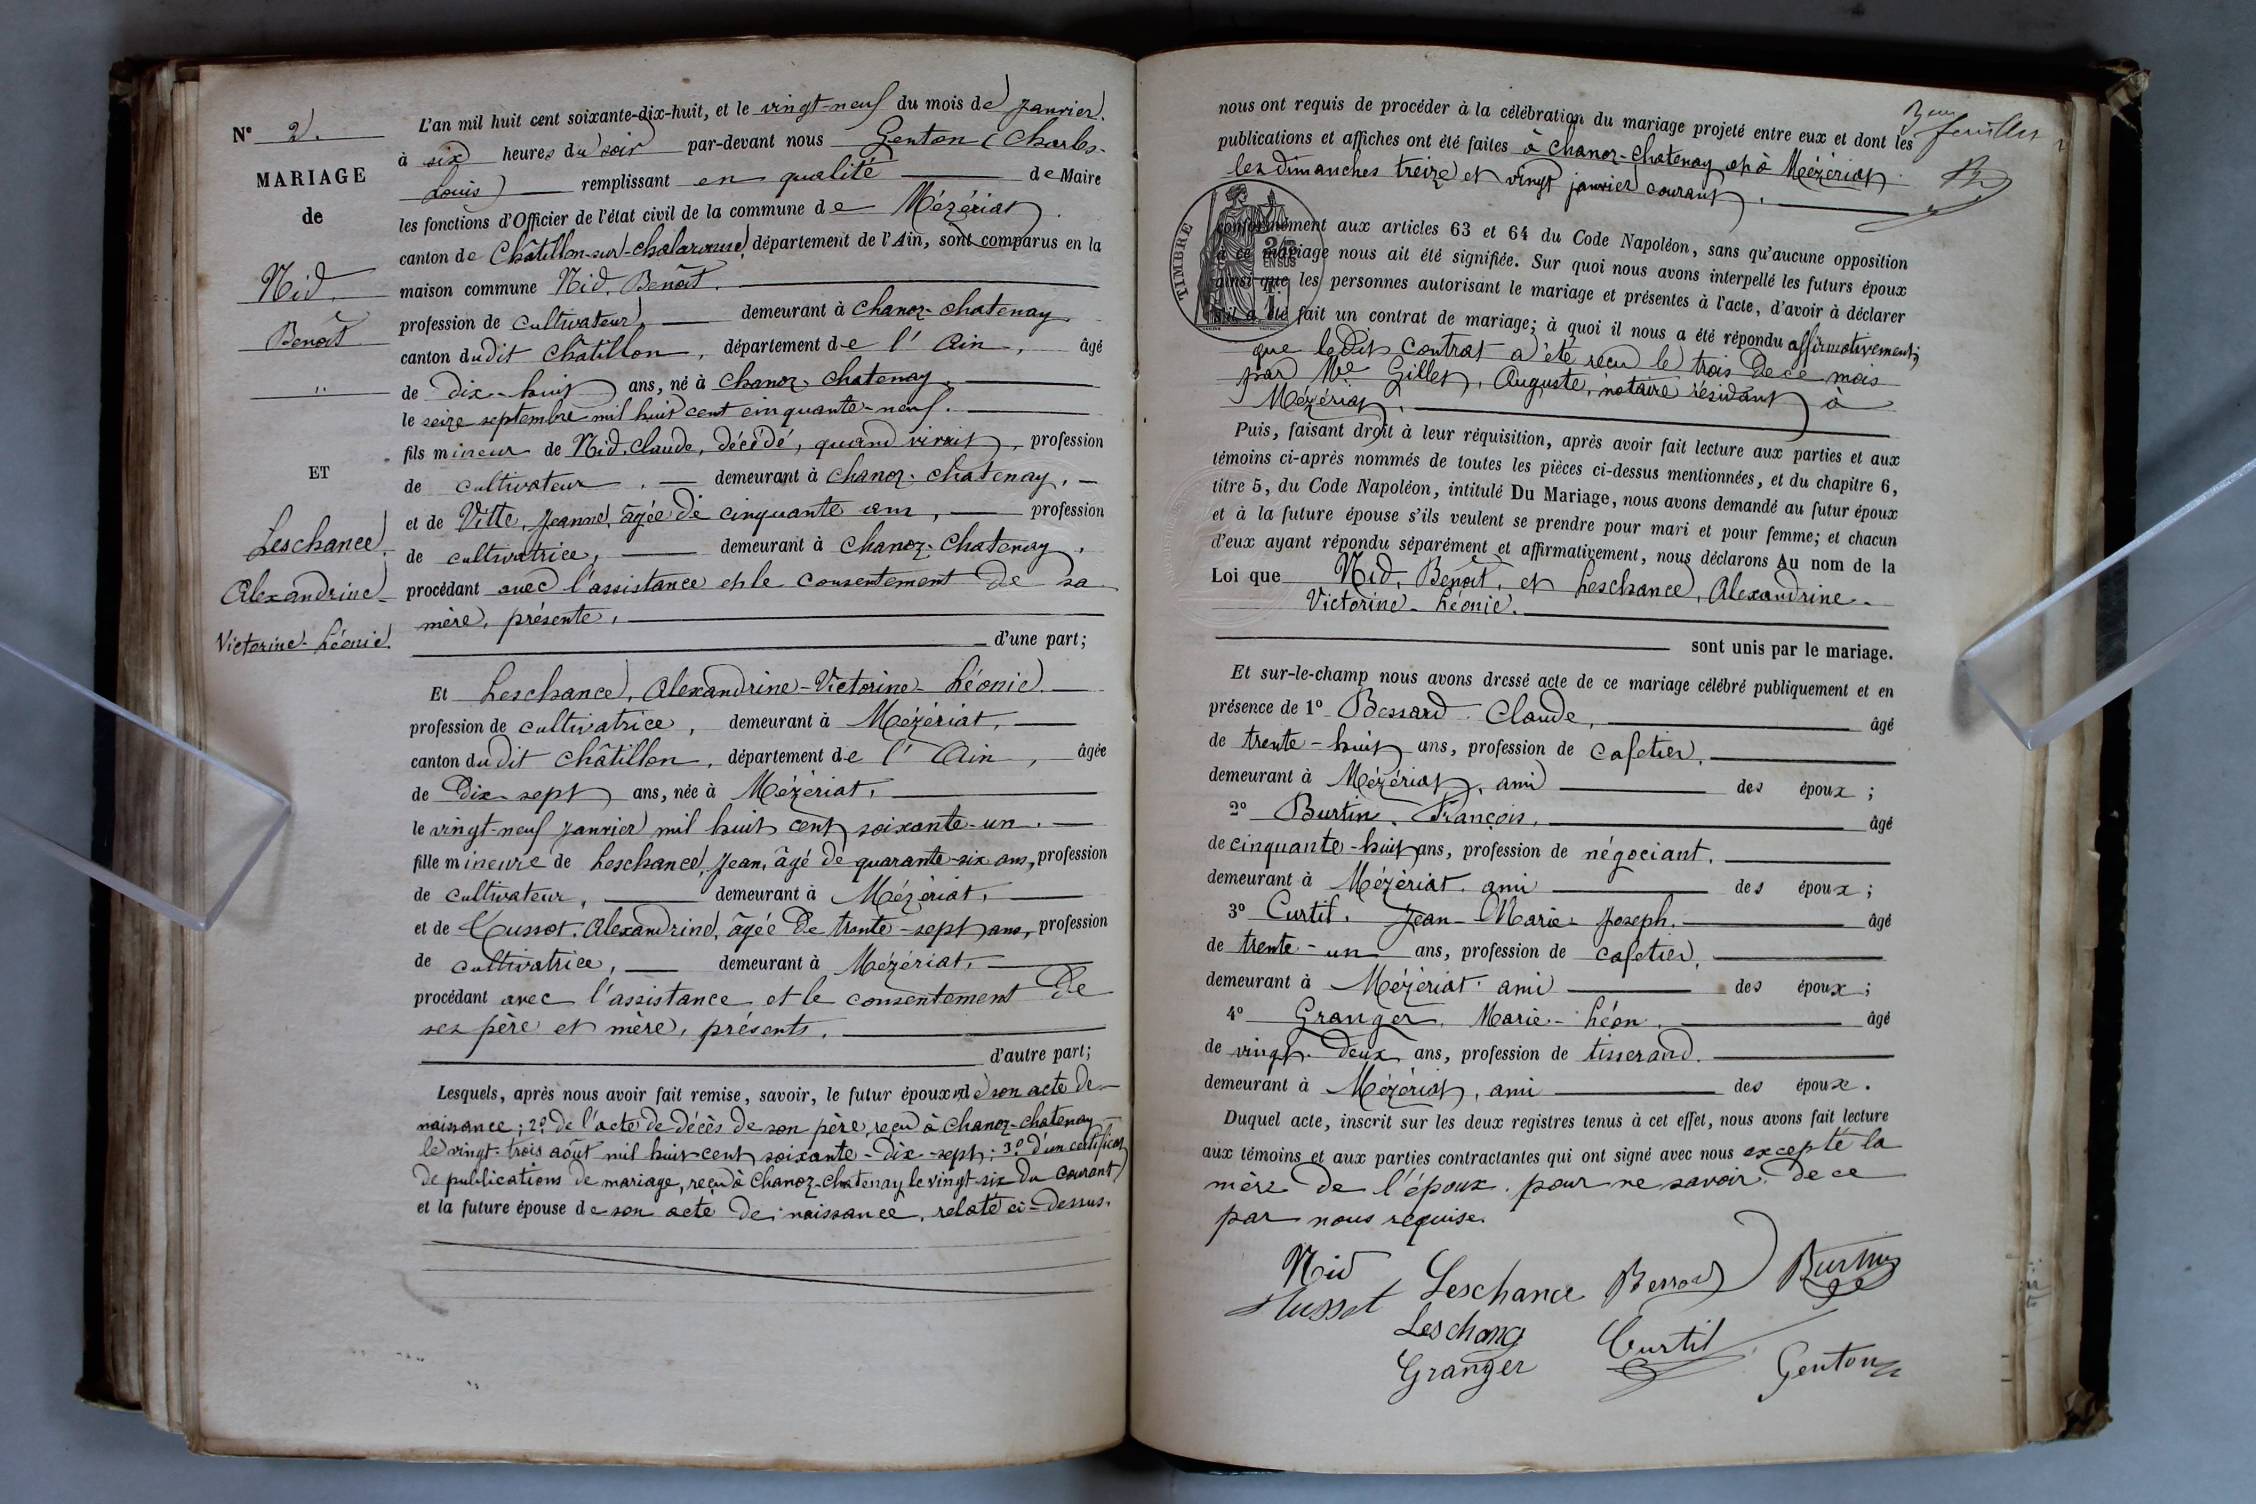 N° 2.
MARIAGE
de
Nid,
Benoît
"
ET
Leschance,
Alexandrine
Victorine-Léonie.
L'an mil huit cent soixante-dix-huit, et le vingt-neuf du mois de Janvier.
à six heures du soir par-devant nous Genton (Charles-
Louis) remplissant en qualité de Maire
les fonctions d'Officier de l'état civil de la commune de Mézériat.
canton de Châtillon-sur-Chalaronne, département de l'Ain, sont comparus en la
maison commune Nid, Benoît.
profession de cultivateur, demeurant à Chanoz-Chatenay
canton dudit Châtillon, département de l'Ain, âgé
de dix-huit ans, né à Chanoz-Chatenay,
le seize septembre mil huit cent cinquante-neuf.
fils mineur de Nid, Claude, décédé, quand vivait, profession
de cultivateur, demeurant à Chanoz-Chatenay,
et de Vitte, Jeanne, âgée de cinquante ans, profession
de cultivatrice, demeurant à Chanoz-Chatenay,
procédant avec l'assistance et le consentement de sa
mère, présente,
d'une part;
Et Leschance, Alexandrine-Victorine-Léonie
profession de cultivatrice, demeurant à Mézériat,
canton dudit Châtillon, département de l'Ain, âgée
de Dix-sept ans, née à Mézériat,
le vingt-neuf janvier mil huit cent soixante-un.
fille mineure de Leschance, Jean, âgé de quarante-six ans, profession
de cultivateur, demeurant à Mézériat,
et de Hussot, Alexandrine, âgée de trente-sept ans, profession
de cultivatrice, demeurant à Mézériat,
procédant avec l'assistance et le consentement de
ses père et mère, présents,
d'autre part;
Lesquels, après nous avoir fait remise, savoir, le futur époux de son acte de
naissance; 2° de l'acte de décès de son père, reçu à Chanoz-Chatenay
le vingt-trois août mil huit cent soixante-dix-sept; 3° d'un certificat
de publications de mariage, reçu à Chanoz-Chatenay le vingt-six du courant
et la future épouse de son acte de naissance, relaté ci-dessus.
3eme feuillet
nous ont requis de procéder à la célébration du mariage projeté entre eux et dont les
publications et affiches ont été faites à Chanoz-Chatenay et à Mézériat
les dimanches treize et vingt janvier courant,
TIMBRE
2/10 EN SUS
conformément aux articles 63 et 64 du Code Napoléon, sans qu'aucune opposition
à ce mariage nous ait été signifiée. Sur quoi nous avons interpellé les futurs époux
ainsi que les personnes autorisant le mariage et présentes à l'acte, d'avoir à déclarer
s'il a été fait un contrat de mariage; à quoi il nous a été répondu affirmativement;
que ledit contrat a été reçu le trois de ce mois
par Me Gillet, Auguste, notaire résidant à
Mézériat,
Puis, faisant droit à leur réquisition, après avoir fait lecture aux parties et aux
témoins ci-après nommés de toutes les pièces ci-dessus mentionnées, et du chapitre 6,
titre 5, du Code Napoléon, intitulé Du Mariage, nous avons demandé au futur époux
et à la future épouse s'ils veulent se prendre pour mari et pour femme; et chacun
d'eux ayant répondu séparément et affirmativement, nous déclarons Au nom de la
Loi que Nid, Benoît, et Leschance, Alexandrine-
Victorine-Léonie.
sont unis par le mariage.
Et sur-le-champ nous avons dressé acte de ce mariage célébré publiquement et en
présence de 1° Bessard Claude, âgé
de trente-huit ans, profession de cafetier,
demeurant à Mézériat, ami des époux;
2° Burtin, François, âgé
de cinquante-huit ans, profession de négociant,
demeurant à Mézériat, ami des époux;
3° Curtil, Jean-Marie-Joseph, âgé
de trente-un ans, profession de cafetier,
demeurant à Mézériat, ami des époux;
4° Granger, Marie-Léon, âgé
de vingt-deux ans, profession de tisserand.
demeurant à Mézériat, ami des époux.
Duquel acte, inscrit sur les deux registres tenus à cet effet, nous avons fait lecture
aux témoins et aux parties contractantes qui ont signé avec nous excepté la
mère de l'époux pour ne savoir de ce
par nous requise.
Nid Leschance Bessard Burtin
Hussot Leschance Curtil
Granger Genton